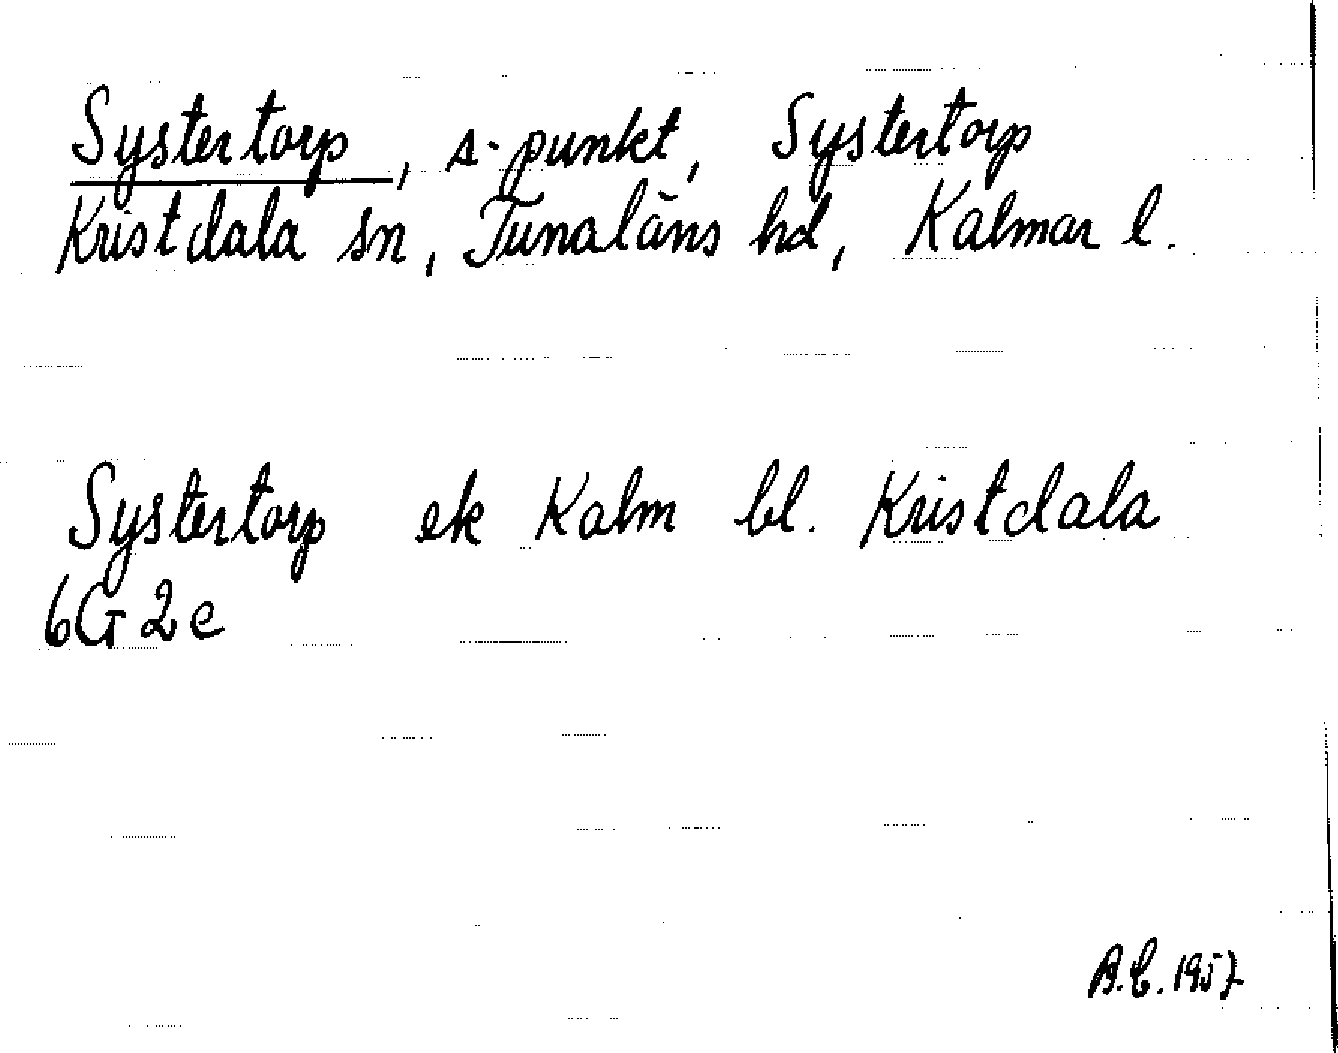 Systertorp, s-punkt, Systertorp
Kristdala sn, Tunaläns hd, Kalmar l.
Systertorp ek Kalm bl. Kristdala
6G 2e
B.E. 1957